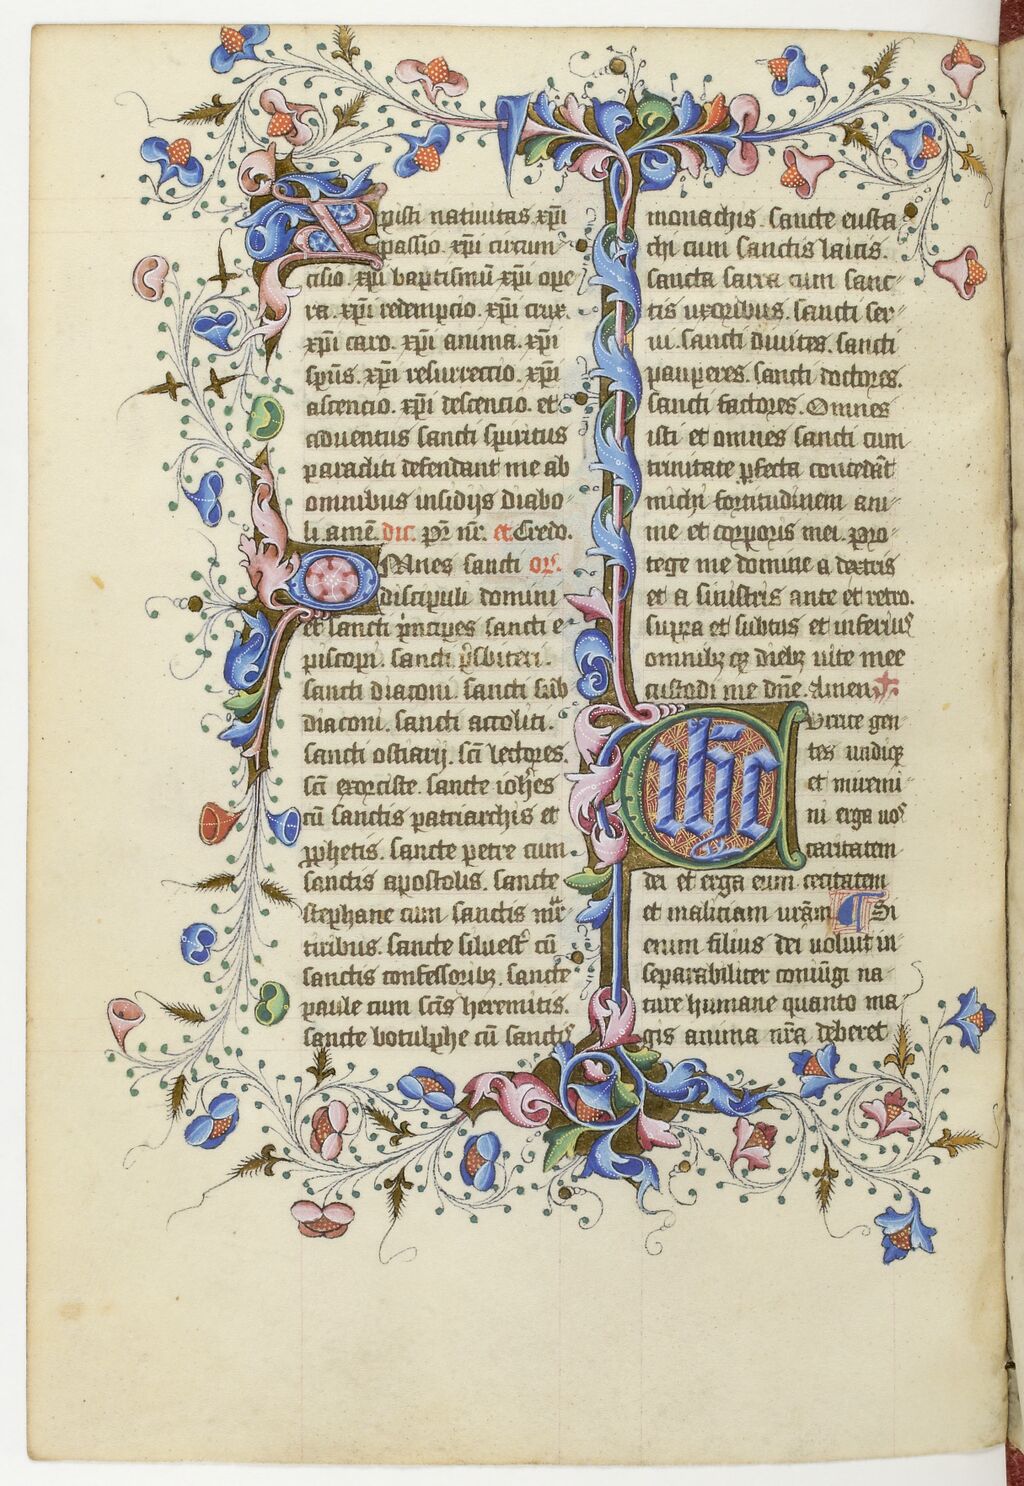 Xpisti natiuitas xp̄i
passio. xp̄i circum
cisio. xp̄i baptismū xp̄i ope
ra. xp̄i redempcio. xp̄i crux.
xp̄i caro. xp̄i anima. xp̄i
sp̄us. xp̄i resurrectio. xp̄i
ascencio. xp̄i descencio. et
aduentus sancti spiritus
paracliti defendant me ab
omnibus insidijs diabo
li amē. dic. pr̄ nr̄. et Credo.
OMnes sancti or̄.
discipuli domini
et sancti p̄ncipes sancti e
piscopi. sancti p̄sbiteri.
sancti diaconi. sancti sub
diaconi. sancti accoliti.
sancti ostiarij. sc̄i lectores.
sc̄i exorciste. sancte ioh̄es
cū sanctis patriarchis et
ꝓphetis. sancte petre cum
sanctis apostolis. sancte
stephane cum sanctis mar
tiribus. sancte siluest̄ cū
sanctis confessoribꝫ. sancte
paule cum sc̄is heremitis.
sancte botulphe cū sanctis
monachis. sancte eusta
chi cum sanctis laicis.
sancta sarra cum sanc
tis uxoribus. sancti ser
ui. sancti diuites. sancti
pauperes. sancti doctores.
sancti factores. Omnes
isti et omnes sancti cum
trinitate ꝑfecta concedāt
michi fortitudinem ani
me et corporis mei. pro
tege me domine a dextris
et a sinistris ante et retro.
supra et subtus et inferius
omnibꝫ qꝫ diebꝫ uite mee
custodi me dn̄e. Amen ✝
Currite gen
tes undiqꝫ
et miremi
ni erga uos
caritatem
dei et erga eum cecitatem
et maliciam urām ¶ Si
enim filius dei uoluit in
separabiliter coniūgi na
ture humane quanto ma
gis anima nrā deberet
ihc